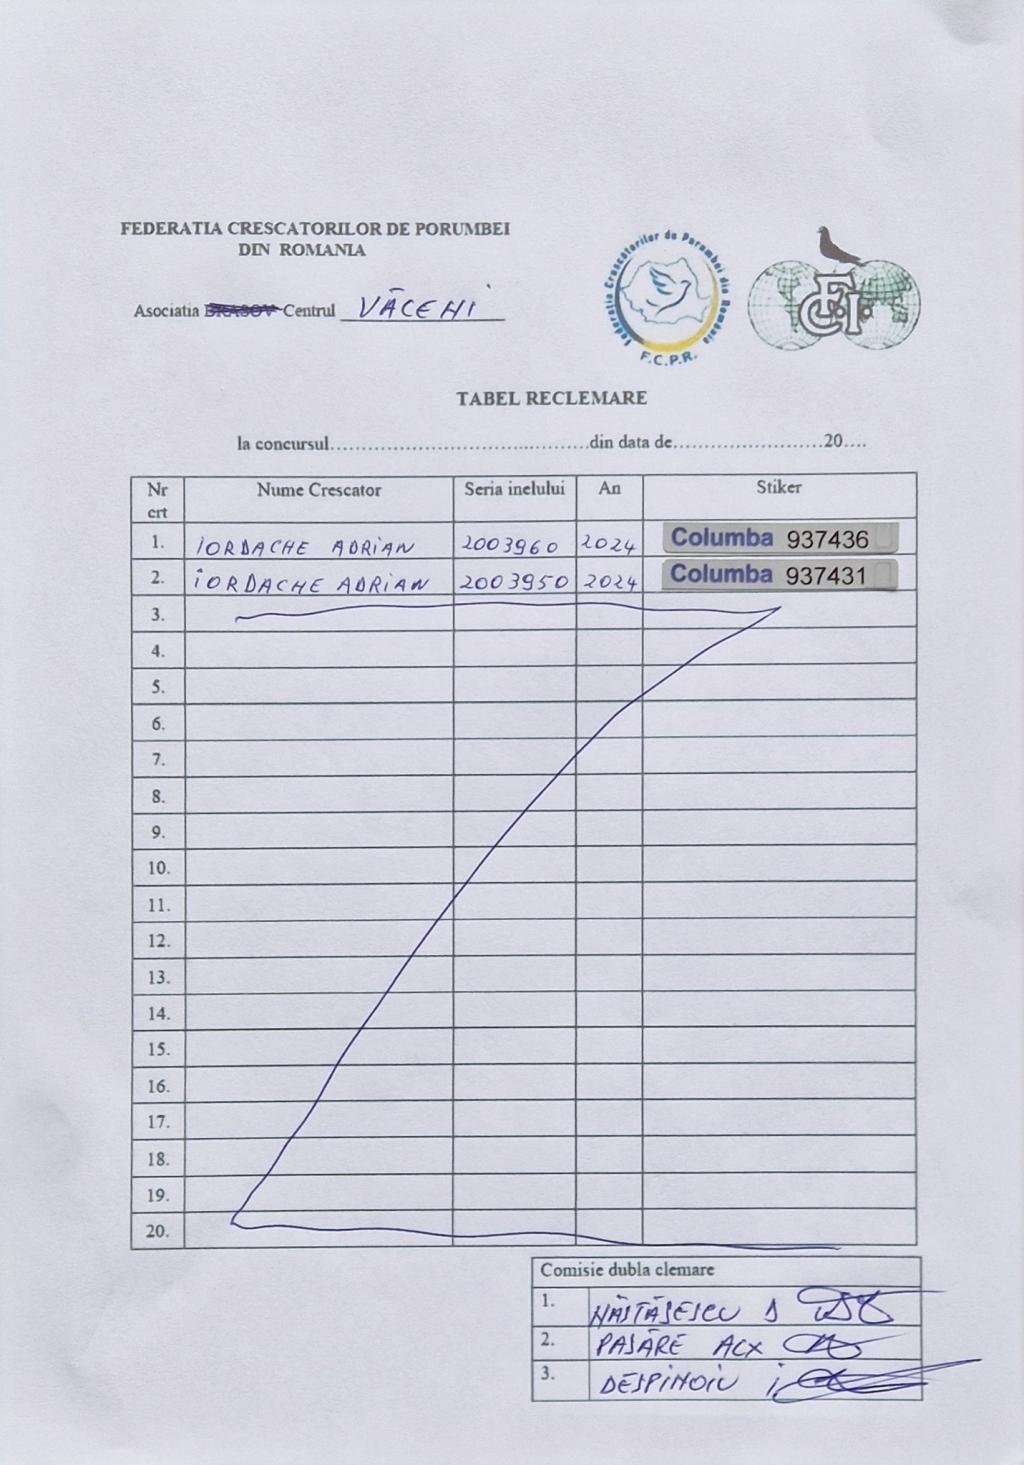 FEDERATIA CRESCATORILOR DE PORUMBEI
DIN ROMANIA
Asociatia BRASOV Centrul VĂCEHI
Federatia Crescatorilor de Porumbei din România
F.C.P.R.
F.C.I.
TABEL RECLEMARE
la concursul.......................................din data de......................20....
Nr crt Nume Crescator Seria inelului An Stiker
1. IORDACHE ADRIAN 2003960 2024 Columba 937436
2. IORDACHE ADRIAN 2003950 2024 Columba 937431
3.
4.
5.
6.
7.
8.
9.
10.
11.
12.
13.
14.
15.
16.
17.
18.
19.
20.
Comisie dubla clemare
1. NĂSTĂSESCU D
2. PASĂRE ALX
3. DESPINOIU I